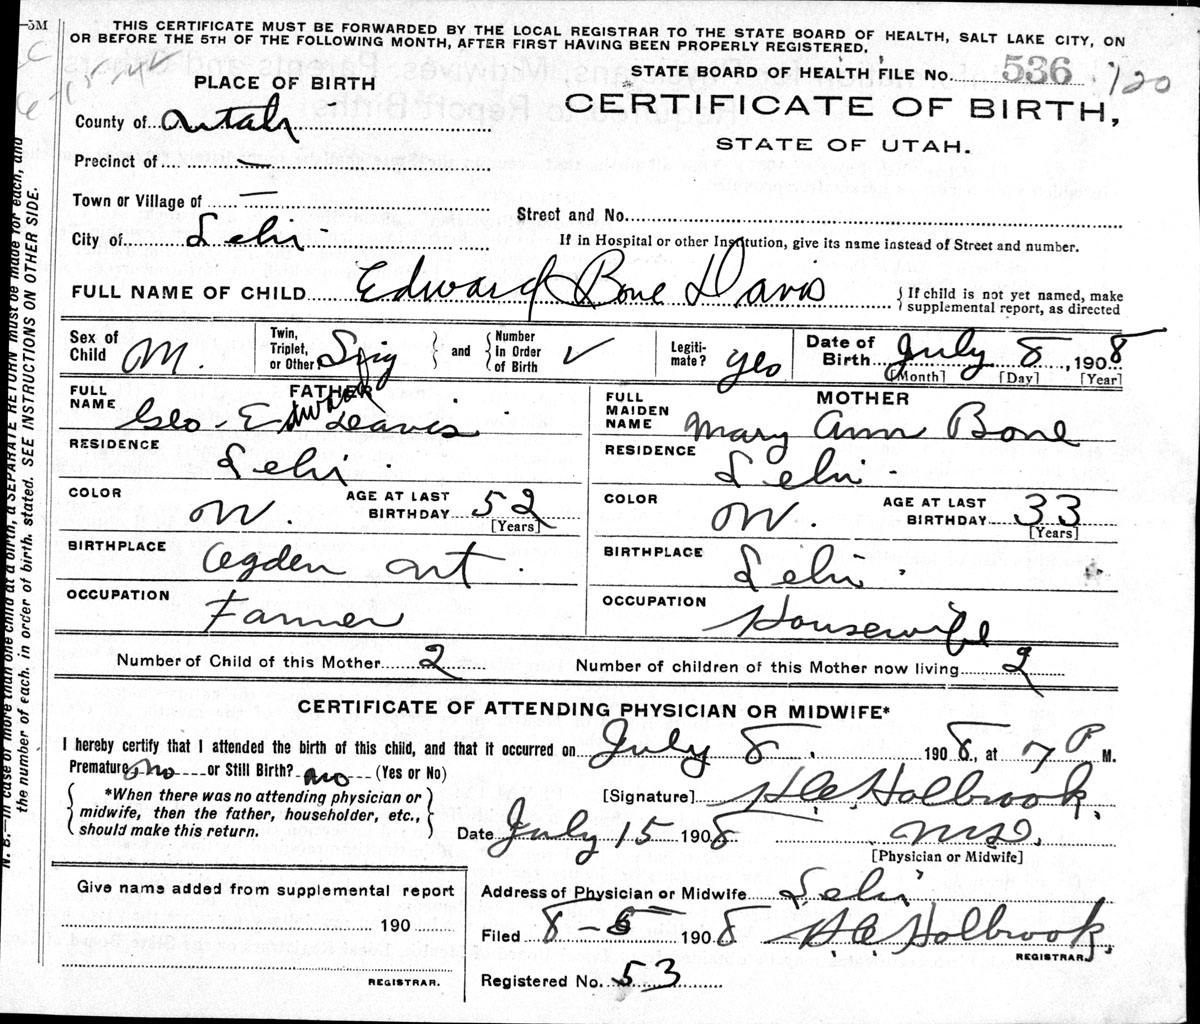 THIS CERTIFICATE MUST BE FORWARDED BY THE LOCAL REGISTRAR TO THE STATE BOARD OF HEALTH, SALT LAKE CITY, ON
OR BEFORE THE 5TH OF THE FOLLOWING MONTH, AFTER FIRST HAVING BEEN PROPERLY REGISTERED.
STATE BOARD OF HEALTH FILE No. 536 120
PLACE OF BIRTH
CERTIFICATE OF BIRTH,
STATE OF UTAH.
County of Utah
Precinct of —
Town or Village of —
Street and No.
City of Lehi
If in Hospital or other Institution, give its name instead of Street and number.
FULL NAME OF CHILD Edward Bone Davis { If child is not yet named, make
supplemental report, as directed
Sex of Child M. Twin, Triplet, or Other? Sing and Number In Order of Birth ✓ Legitimate? yes Date of Birth July 8, 1908
[Month] [Day] [Year]
FATHER MOTHER
FULL NAME Geo. Edward Deavis FULL MAIDEN NAME Mary Ann Bone
RESIDENCE Lehi RESIDENCE Lehi
COLOR W. AGE AT LAST BIRTHDAY 52 [Years] COLOR W. AGE AT LAST BIRTHDAY 33 [Years]
BIRTHPLACE Ogden Ut. BIRTHPLACE Lehi
OCCUPATION Farmer OCCUPATION Housewife
Number of Child of this Mother 2 Number of children of this Mother now living 2
CERTIFICATE OF ATTENDING PHYSICIAN OR MIDWIFE*
I hereby certify that I attended the birth of this child, and that it occurred on July 8. 1908, at 7 P M.
Premature no or Still Birth? no (Yes or No)
*When there was no attending physician or
midwife, then the father, householder, etc.,
should make this return.
[Signature] H.C. Holbrook.
Date July 15 1908 M.D.
[Physician or Midwife]
Give name added from supplemental report
190
REGISTRAR.
Address of Physician or Midwife Lehi
Filed 8-5 1908 H.C. Holbrook.
REGISTRAR.
Registered No. 53
N. B.—In case of more than one child at a birth, a SEPARATE RETURN must be made for each, and
the number of each, in order of birth, stated. SEE INSTRUCTIONS ON OTHER SIDE.